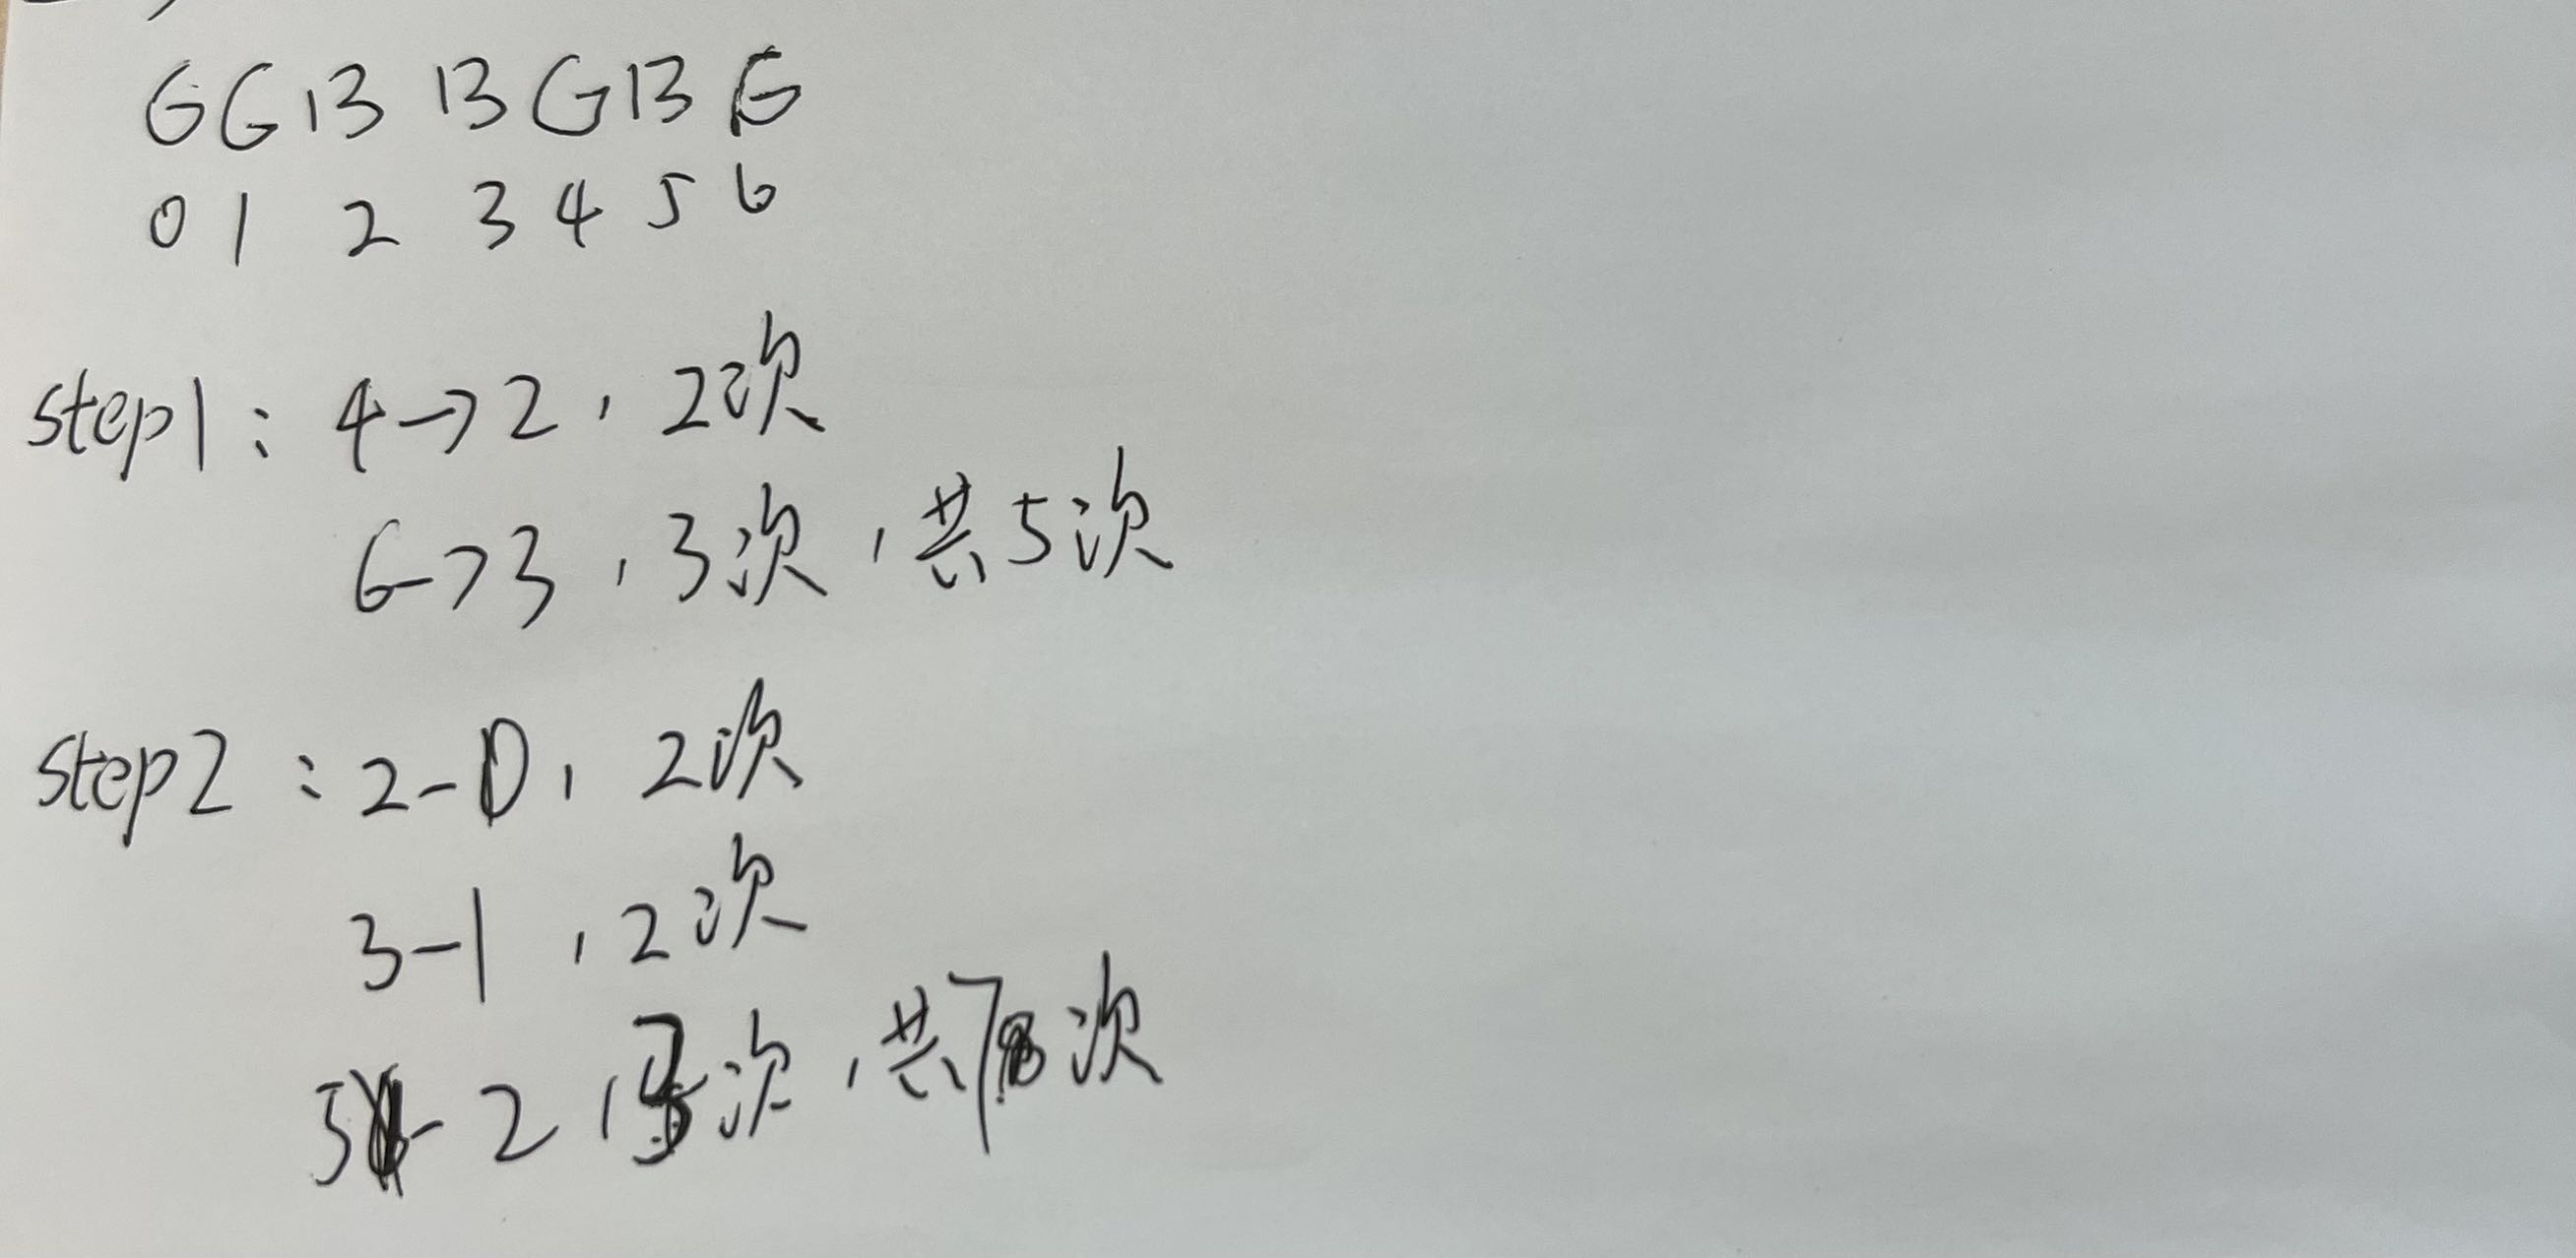 GGBBGBG
0 1 2 3 4 5 6
step1: 4→2, 2次
6→3, 3次, 共5次
step2: 2-0, 2次
3-1, 2次
5-2, 3次, 共7次